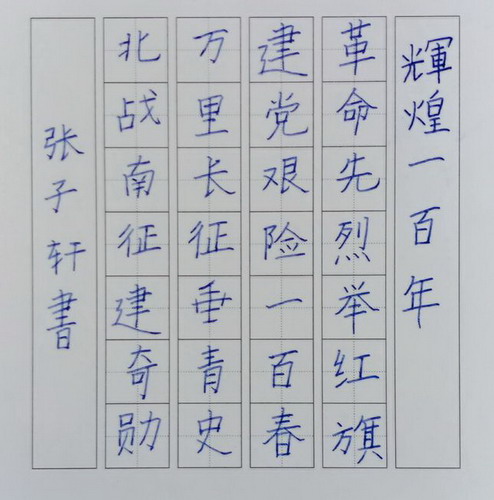 輝煌一百年
革命先烈举红旗
建党艰险一百春
万里长征垂青史
北战南征建奇勋
张子轩書